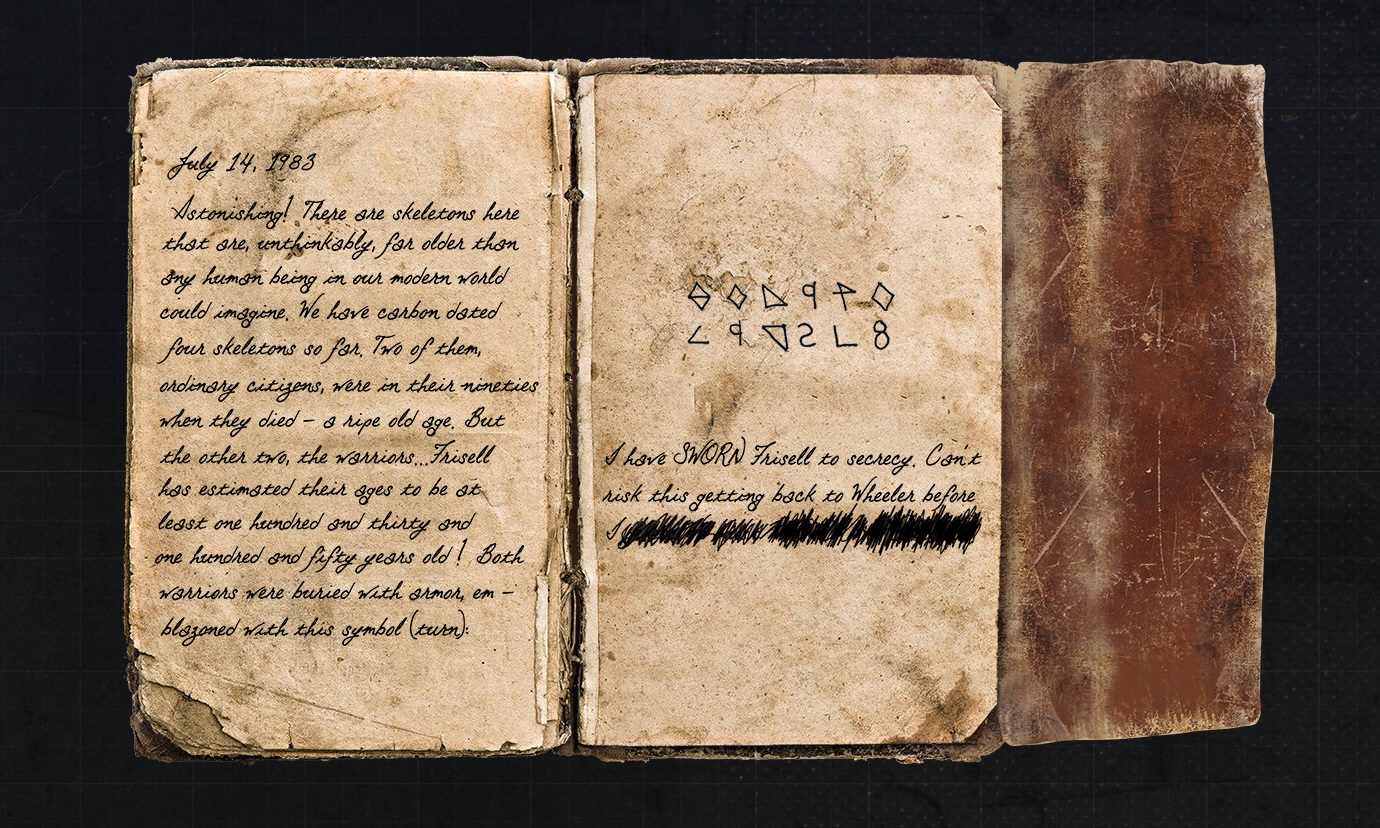 July 14, 1983
Astonishing! There are skeletons here
that are, unthinkably, far older than
any human being in our modern world
could imagine. We have carbon dated
four skeletons so far. Two of them,
ordinary citizens, were in their nineties
when they died – a ripe old age. But
the other two, the warriors...Frisell
has estimated their ages to be at
least one hundred and thirty and
one hundred and fifty years old! Both
warriors were buried with armor, em –
blazoned with this symbol (turn):
I have SWORN Frisell to secrecy. Can't
risk this getting back to Wheeler before
I